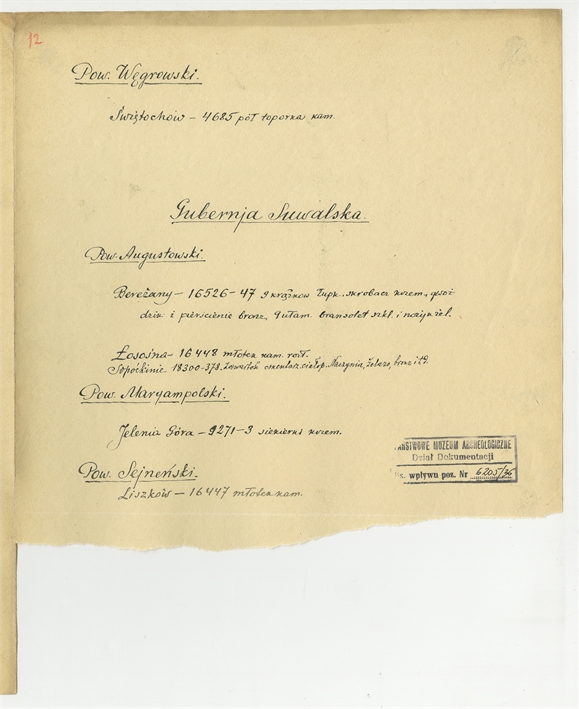 12
Pow. Węgrowski.
Świętochów – 4685 pół toporka kam.
Gubernja Suwalska.
Pow. Augustowski.
Bereżany – 16526–47 9 krążków łupk. skrobacz krzem., gwoź-
dzik i pierścienie bronz. 4 ułam. bransolet szkl. i nożyk żel.
Łosośna – 16448 młotek kam. rozł.
Sopoćkinie 18300–378. Zawartość cmentarz. ciałop. Naczynia, żelazo, bronz itd.
Pow. Maryampolski.
Jelenia Góra – 9271–3 siekierki krzem.
PAŃSTWOWE MUZEUM ARCHEOLOGICZNE
Dział Dokumentacji
Ks. wpływu poz. Nr 6205/76
Pow. Sejneński.
Liszków – 16447 młotek kam.